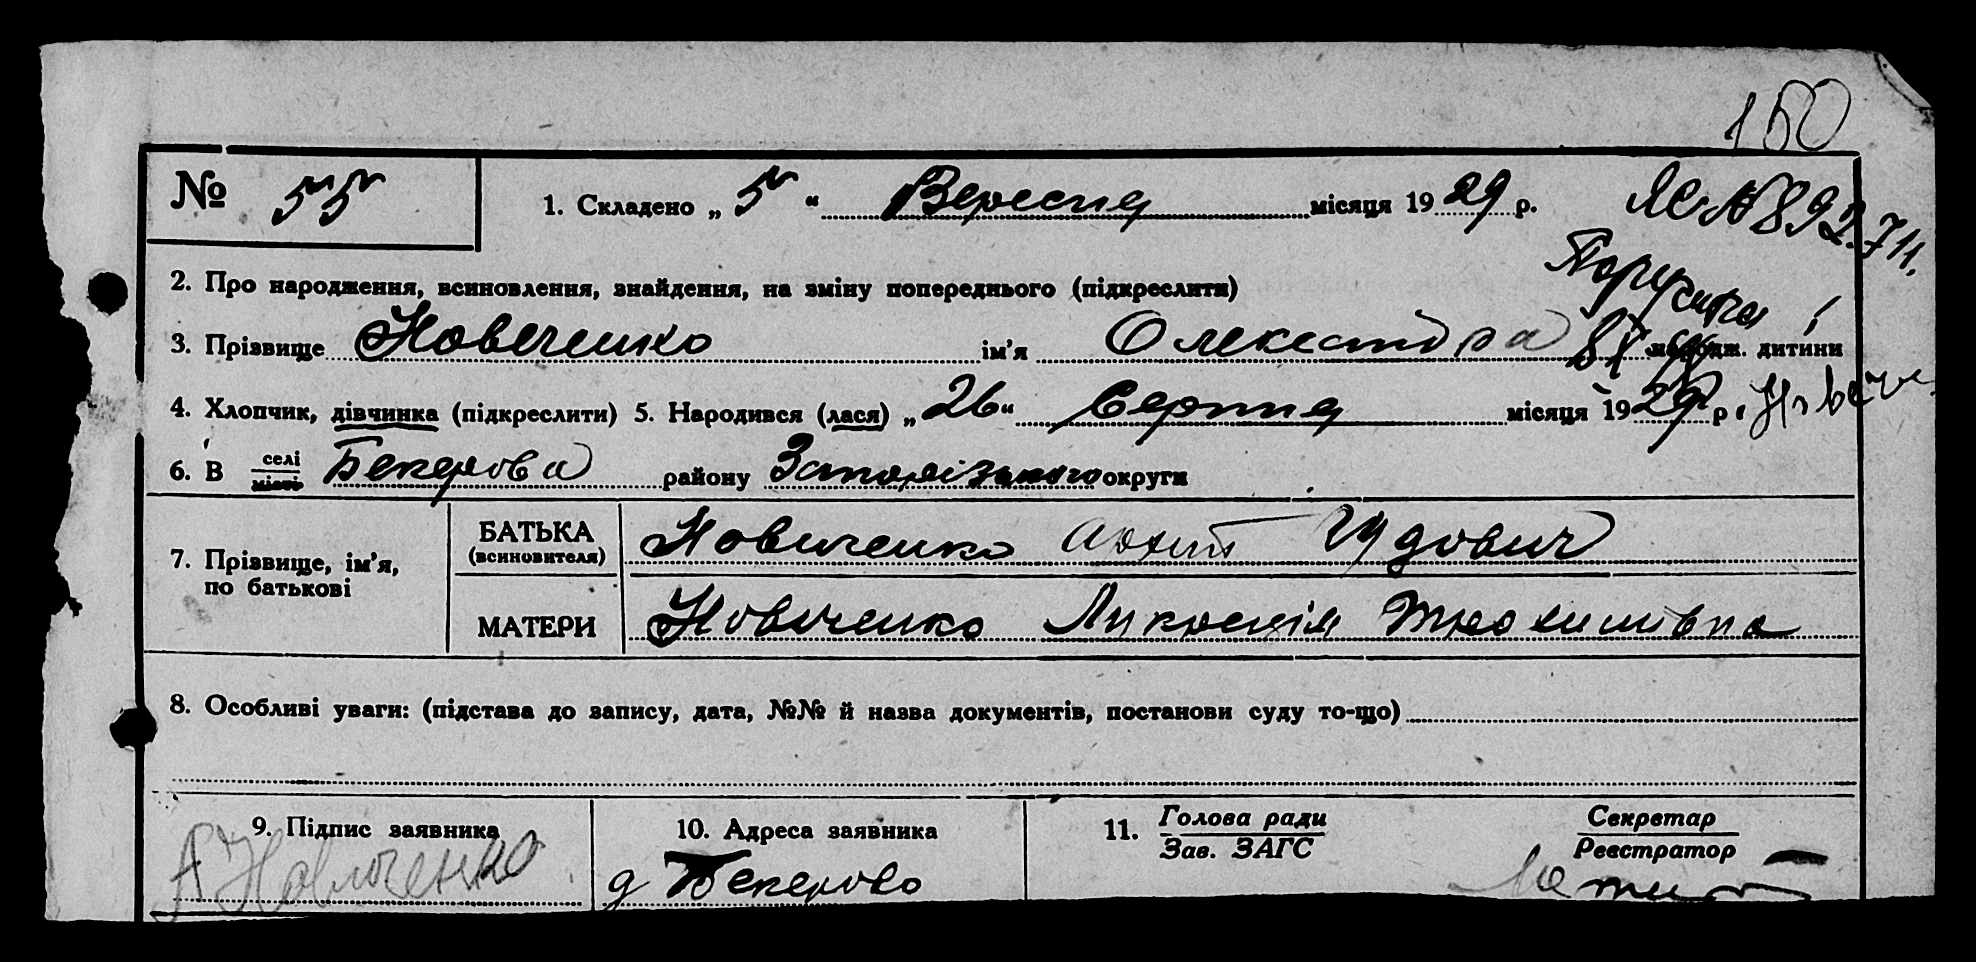 150
№ 55
1. Складено „ 5 “ Вересня місяця 1929 р.
ЯС № 892
2. Про народження, всиновлення, знайдення, на зміну попереднього (підкреслити)
3. Прізвище Новеченко ім’я Олександра народж. дитини
4. Хлопчик, дівчинка (підкреслити) 5. Народився (лася) „ 26 “ Серпня місяця 1929 р.
6. В селі місті Бекерова району Запорізького округи
7. Прізвище, ім’я, по батькові
БАТЬКА (всиновителя) Новиченко Юдович
МАТЕРИ Новиченко Лукренія Трохимівна
8. Особливі уваги: (підстава до запису, дата, №№ й назва документів, постанови суду то-що)
9. Підпис заявника
А Новиченко
10. Адреса заявника
д Бекерово
11. Голова ради Зав. ЗАГС
Секретар Реєстратор